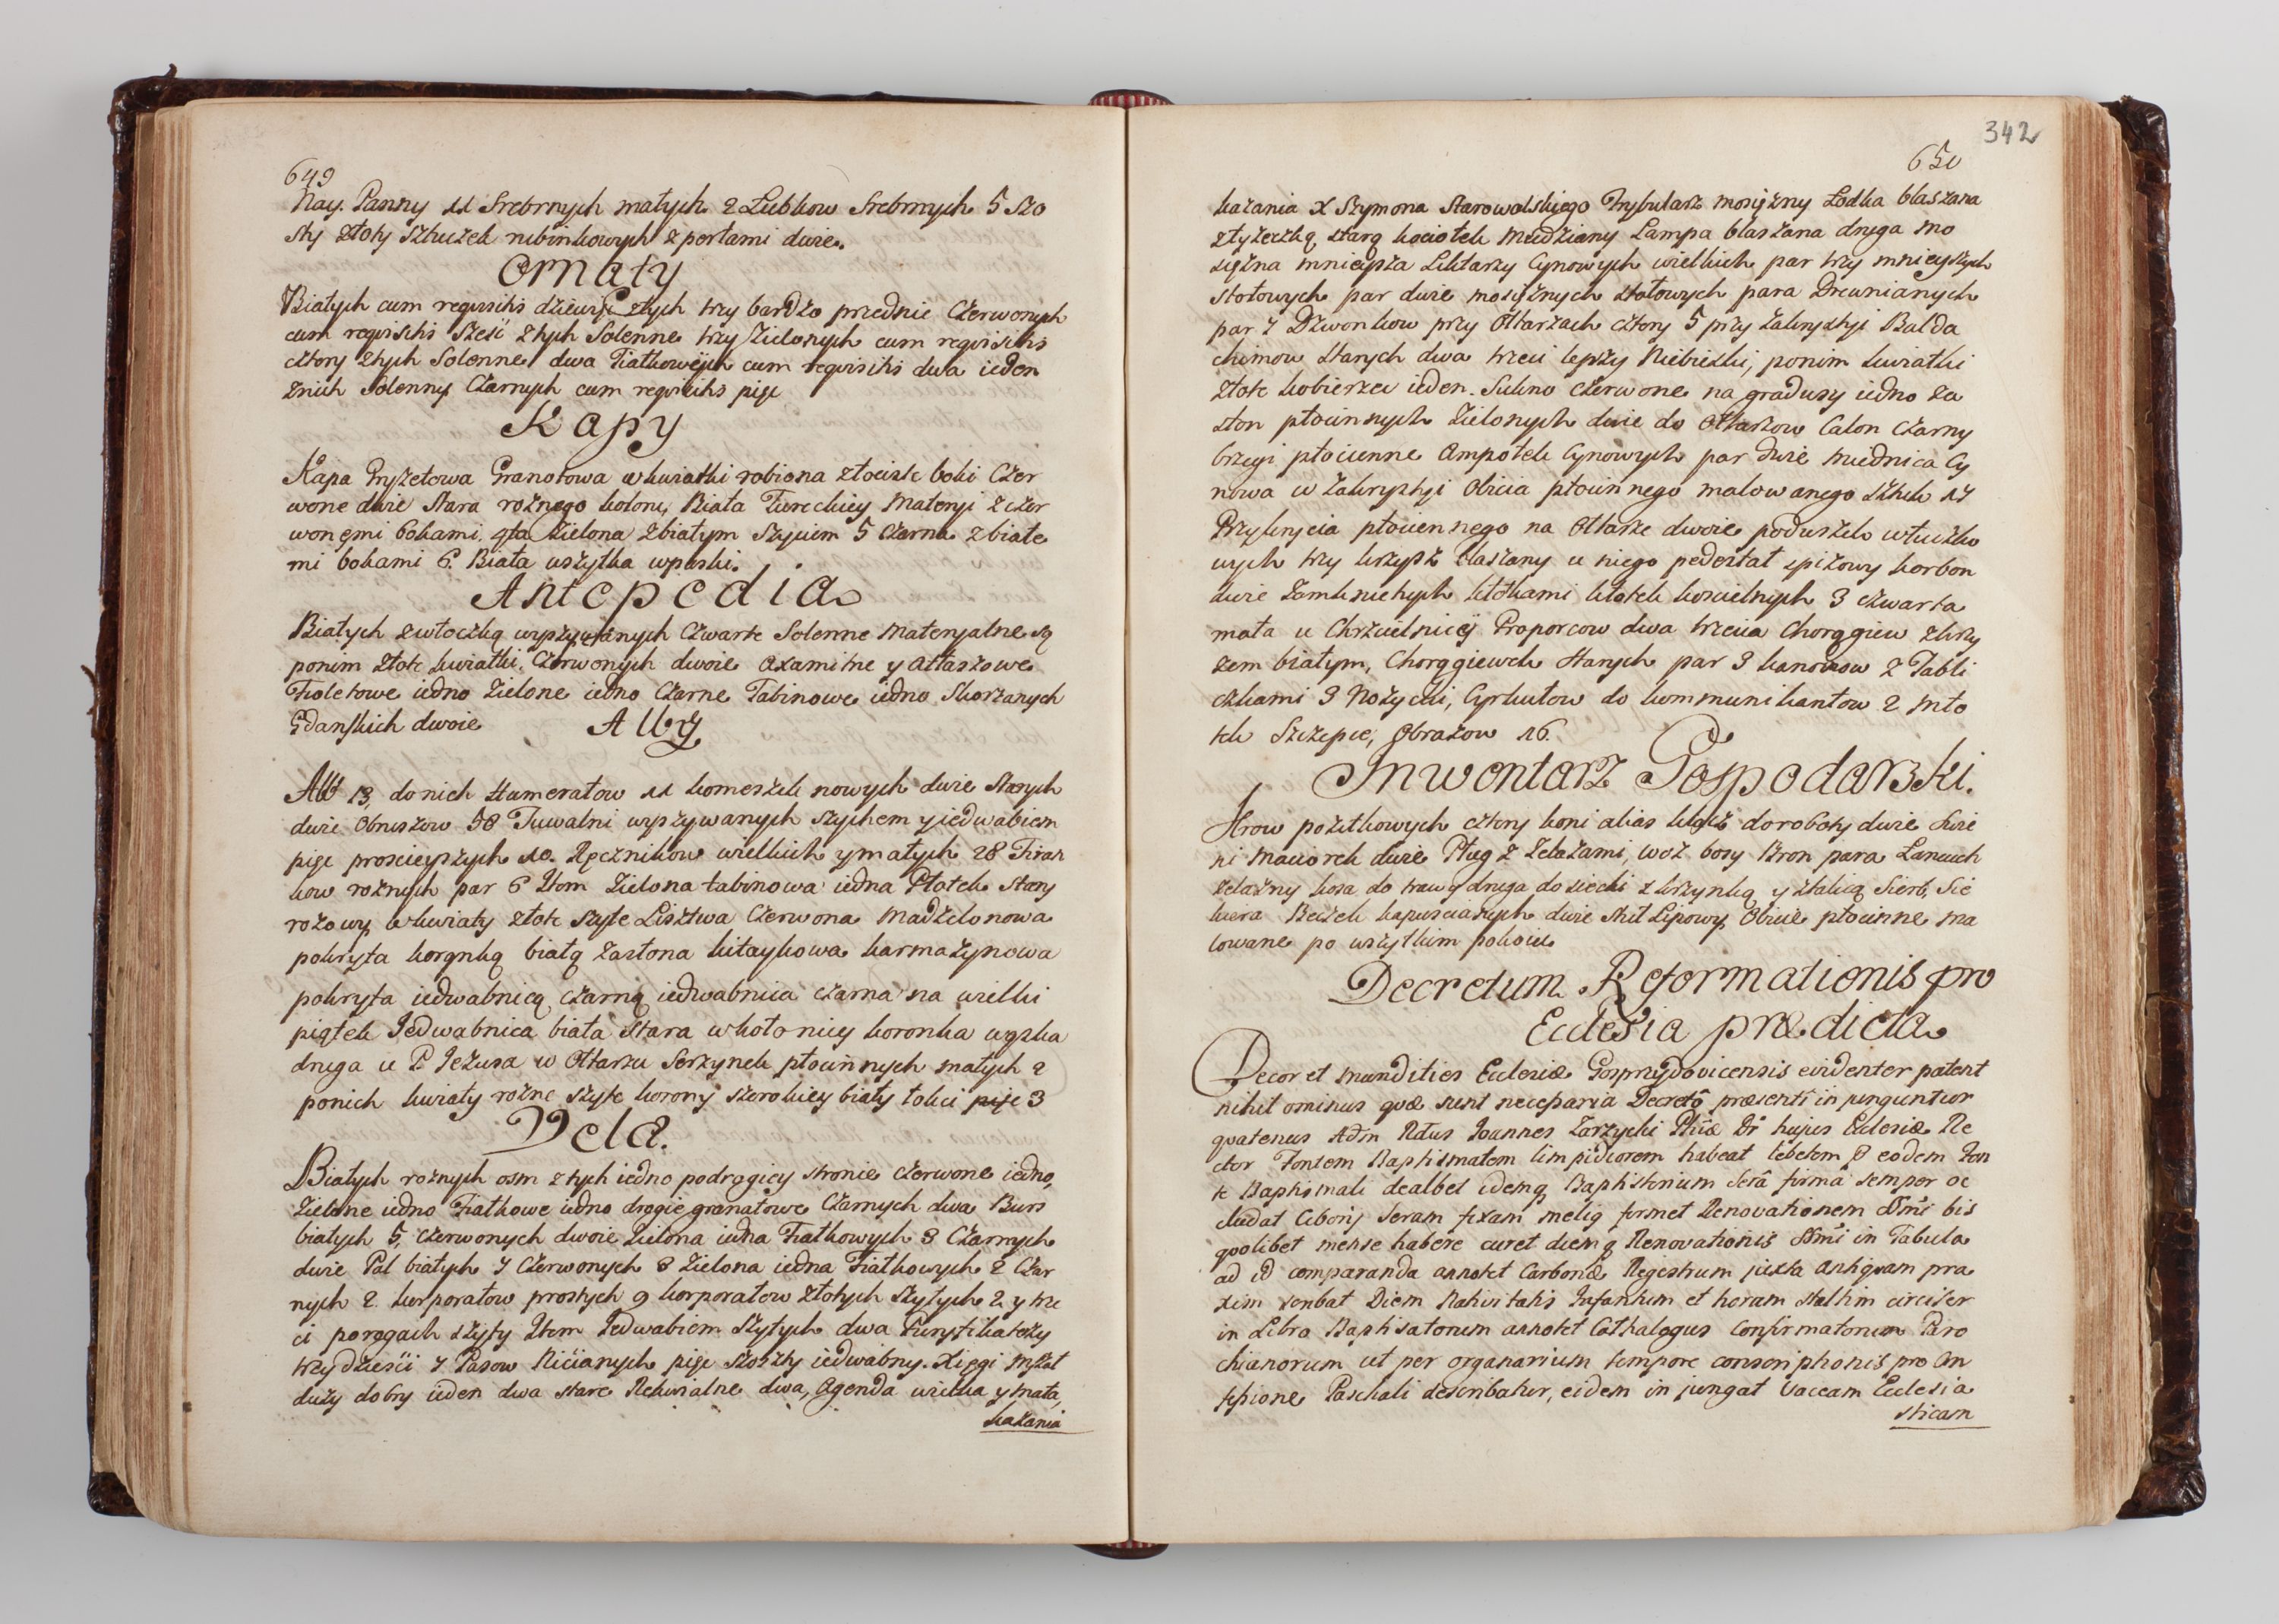 649
Nay. Panny 11 Srebrnych małych 2 Lubkow Srebrnych 5 szo
sty złoty sztuzek rubinkowych z perłami dwie.
Ornaty
Białych cum requisitis dziewięć z tych trzy bardzo przednie Czerwonych
cum requisitis sześć z tych Solenne trzy Zielonych cum requisitis
cztery z tych Solenne dwa Fiałkowych cum requisitis dwa ieden
znich Solenny Czarnych cum requisitis pięć
Kapy
Kapa Gryzetowa Granatowa w kwiatki robiona złociste boki Czer
wone dwie Stara rożnego koloru, Biała Tureckiey Materyi z czer
wonęmi bokami. 4ta Zielona z białym szyciem 5 Czarna z białe
mi bokami 6. Biała wszytka w paski.
Antepedia
Białych z włoczką wyszywanych Czwarte Solenne Materyalne są
ponim złote kwiatki. Czerwonych dwoie Axamitne y Atłaszowe
Fioletowe iedno Zielone iedno Czarne Tabinowe iedno Skorzanych
Gdanskich dwoie Alby
Alb 13, do nich Humerałow 11 komeszek nowych dwie Starych
dwie Obruszow 58 Tuwalni wyszywanych szychem y iedwabiem
pięć prosciejszych 10. Ręcznikow wielkich y małych 28 Firan
kow rożnych par 6 Item Zielona tabinowa iedna Płatek Stary
rożowy w kwiaty złote szyte Lisztwa Czerwona Madzelonowa
pokryta korąnką białą zasłona kitaykowa karmazynowa
pokryta iedwabnicą czarną iedwabnica czarna na wielki
piątek Jedwabnica biała stara w koło niey koronka wązka
druga u P. Jezusa w Ołtarzu Serzynek płociennych małych 2
ponich kwiaty rożne szyte korony szerokiey biały łokci pięć 3
Vela.
Białych rożnych osm z tych iedno podrągiey stronie czerwone iedno
Zielone iedno Fiałkowe iedno drągie granatowe Czarnych dwa Burs
białych 5, czerwonych dwoie Zielona iedna Fiałkowych 3 Czarnych
dwie Pal białych 7 Czerwonych 3 Zielona iedna Fiałkowych 2 Czar
nych 2. korporałow prostych 9 korporałow złotych szytych 2 y trze
ci porogach szyty Item Jedwabiem szytych dwa Puryfikaterzy
trzydzieści 7 Pasow Nićianych pięć szoszty iedwabny. Xięgi mszał
duży dobry ieden dwa stare Rekwialne dwa, Agenda wielka y mała,
kazania
342
650
kazania X Szymona Starowolskiego Trybularz mosiężny Łodka blaszana
z łyżeczką starą kociołek Miedziany Lampa blaszana druga mo
siężna mnieysza Lichtarzy Cynowych wielkich par trzy mnieyszych
stołowych par dwie mosiężnych stołowych para Drewnianych
par 7 Dzwonkow przy Ołtarzach cztery 5 przy Zakrystyi Balda
chimow starych dwa trzeci lepszy Niebieski, ponim kwiatki
złote kobierzec ieden. Sukno czerwone na gradusy iedno za
słon płociennych Zielonych dwie do Ołtarzow Całon czarny
brzegi płocienne Ampołek Cynowych par dwie Miednica Cy
nowa w Zakrystyi Obicia płociennego malowanego sztuk 17
Przykrycia płociennego na Ołtarze dwoie poduszek włuczko
wych trzy krzysz blaszany u niego pedestał spiżowy korbon
dwie Zamknietych kłotkami kłotek koscielnych 3 czwarta
mała u Chrzcielnicy Proporcow dwa trzecia Chorągiew z krzy
zem białym, Chorągiewek starych par 3 kanonow z Tabli
czkami 3 Nożyczki, Cyrkułow do kommunikantow 2 mło
tek Szczepce, Obrazow 16.
Inwentarz Gospodarski.
Krow pożytkowych cztery koni alias klacz do roboty dwie Swie
ni maciorek dwie Pług z Zelazami, woz bosy Bron para Lancuch
zelazny kosa do trawy druga do siecki z krzynką y stalicą Sierb, Sie
kiera Beczek kapuscianych dwie stoł Lipowy Obicie płocienne ma
lowane po wszytkim pokoiu
Decretum Reformationis pro
Ecclesia prædicta
Decor et mundities Ecclesiæ Gosprzydovicensis evidenter patent
nihil ominus quæ sunt necessaria Decretô præsenti in junguntur
quatenus Adm Rdus Joannes Zarzycki Phiæ Dr hujus Ecclesiæ Re
ctor Fontem Baptismatem limpidiorem habeat lebetem eodem Fon
te Baptismali dealbet idemq Baptisterium Serâ firmâ semper oc
cludat Ciborij Seram fixam meliq formet Renovationem SSmi bis
quolibet mense habere curet diemq Renovationis SSmi in Tabula
ad id comparanda annotet Carbonæ Regestrum juxta antiquam pra
xim scribat Diem Nativitatis Infantium et horam Saltim circiter
in Libro Baptisatorum annotet Cathalogus Confirmatorum Paro
chianorum ut per organarium tempore conscriptionis pro Con
fessione Paschali describatur, eidem in jungat Vaccam Ecclesia
sticam